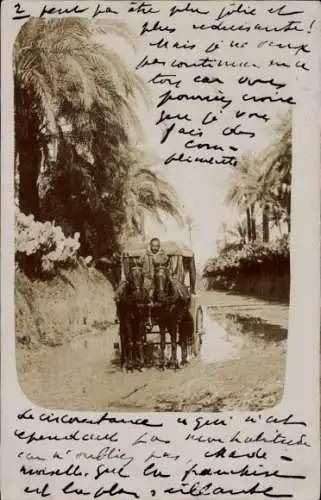 2 peut pas être plus jolie et
plus séduisante!
Mais je n'aux
pas continuer sur ce
ton car vous
pourriez croire
que je vous
fais des
com-
pliments
La circonstance qui n'est
cependant pas mon habitude
car n'oubliez pas, Made-
moiselle, que la franchise
est la plus